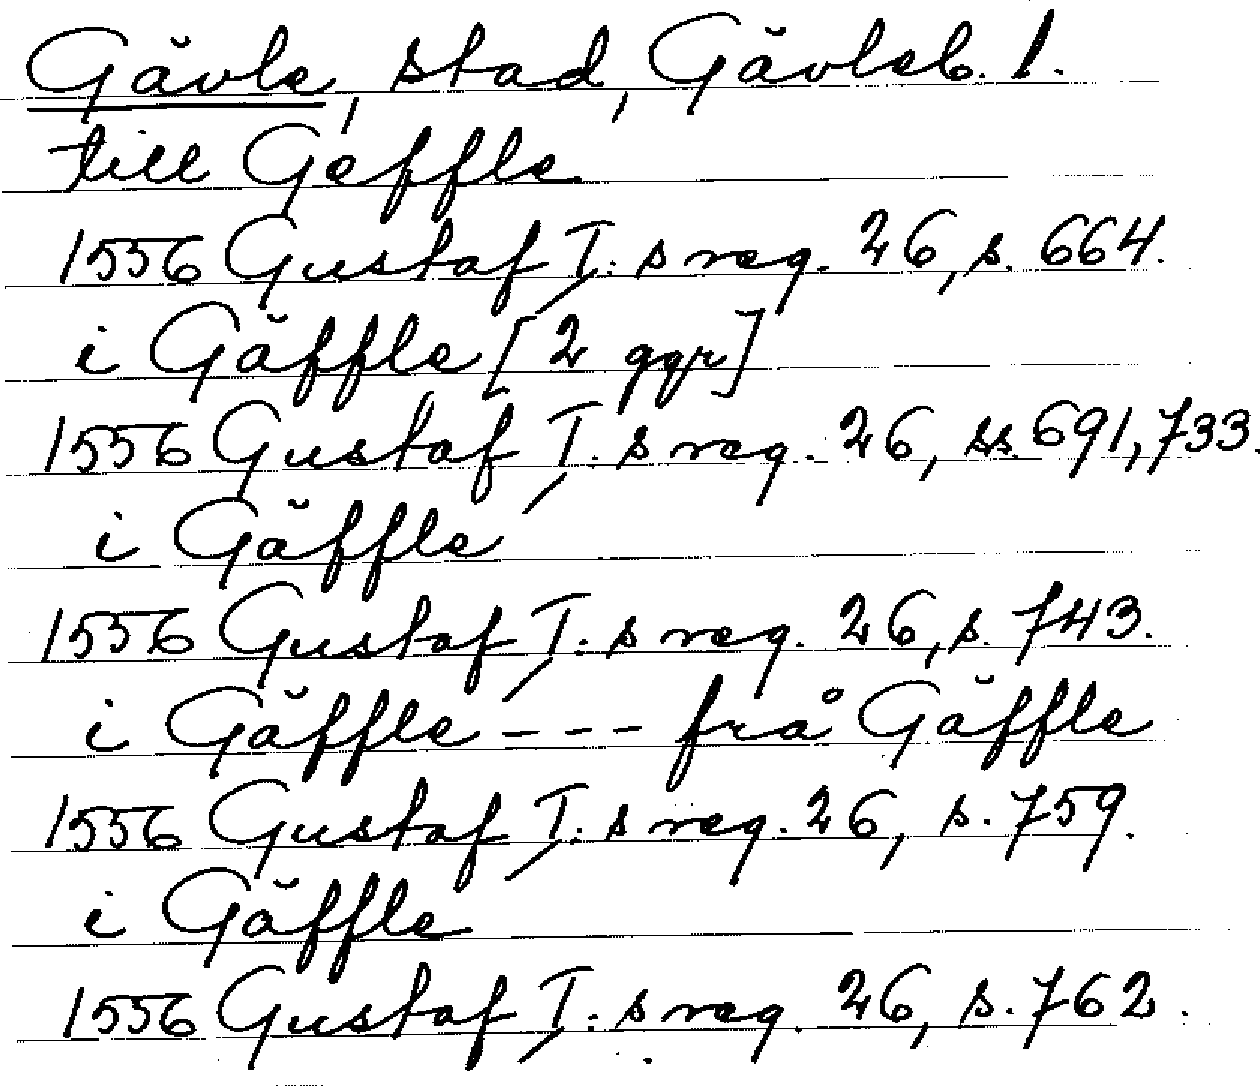 Gävle, stad, Gävleb. l.
till Geffle
1556 Gustaf I:s reg. 26, s. 664.
i Gäffle [2 ggr]
1556 Gustaf I:s reg. 26, ss. 691, 733.
i Gäffle
1556 Gustaf I:s reg. 26, s. 743.
i Gäffle --- frå Gäffle
1556 Gustaf I:s reg. 26, s. 759.
i Gäffle
1556 Gustaf I:s reg. 26, s. 762.